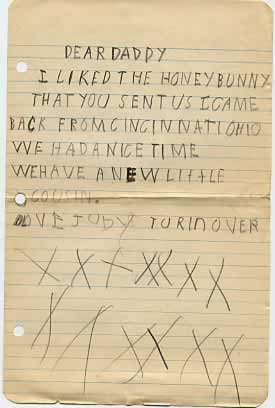 DEAR DADDY
I LIKED THE HONEY BUNNY
THAT YOU SENT US I CAME
BACK FROM CINCINNATI OHIO
WE HAD A NICE TIME
WE HAVE A NEW LITTLE
COUSIN.
LOVE JUDY TURIN OVER
X X X XX X X
X X XX X X